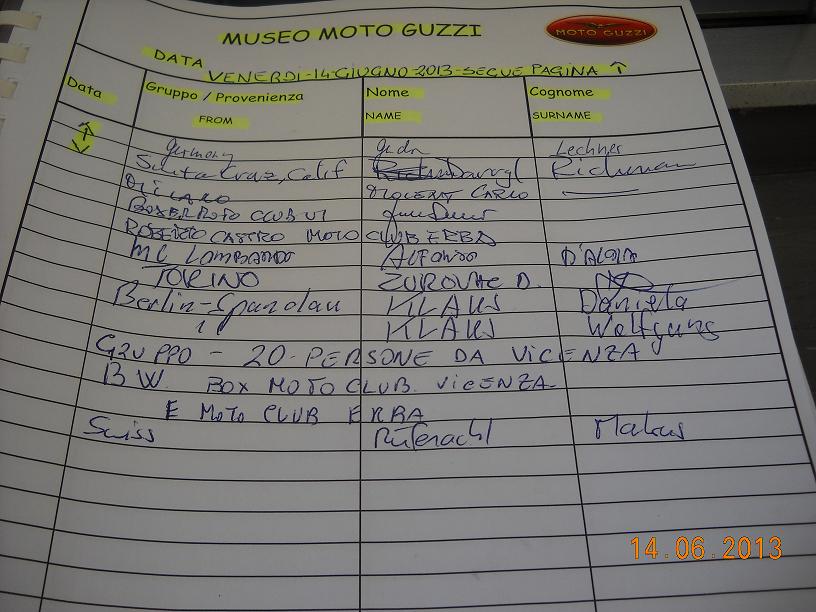 MUSEO MOTO GUZZI
MOTO GUZZI
DATA
VENERDI-14-GIUGNO-2013-SEGUE PAGINA ↑
Data Gruppo / Provenienza Nome Cognome
FROM NAME SURNAME
Germany Lechner
Santa Cruz, Calif Darryl Richman
CARLO
BOXER MOTO CLUB VI
ROBERTO CASTRO MOTO CLUB ERBA
MC LOMBARDO ALFONSO D'ALOIA
TORINO ZUROVAC D.
Berlin-Spandau KLAUS Daniela
" KLAUS Wolfgang
GRUPPO - 20-PERSONE DA VICENZA
BW BOX MOTO CLUB. VICENZA
E MOTO CLUB ERBA
Suiss Rüfenacht Markus
14.06.2013